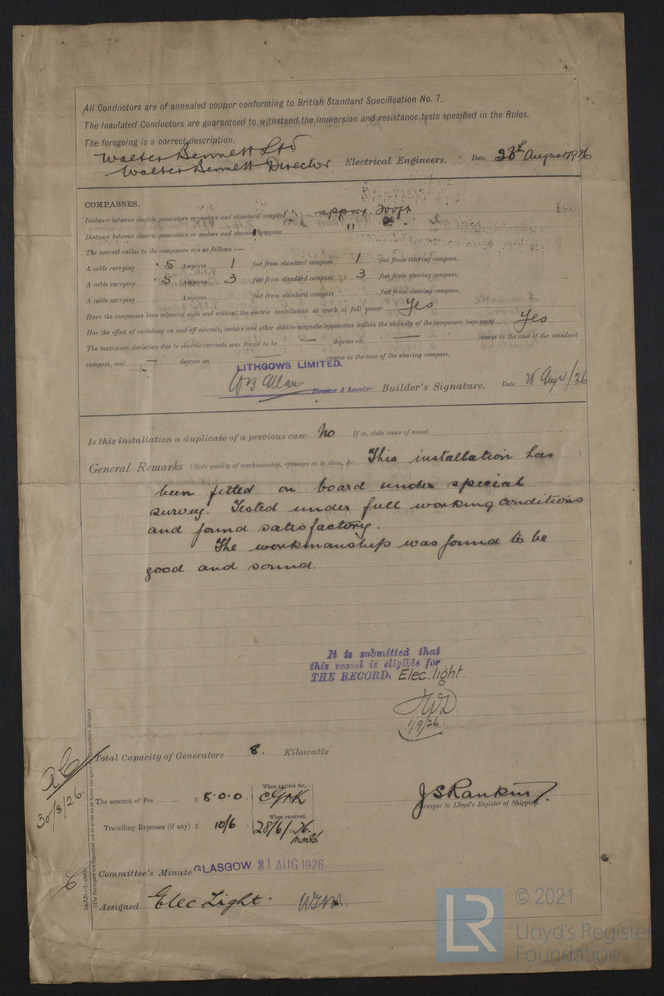 All Conductors are of annealed copper conforming to British Standard Specification No. 7.
The Insulated Conductors are guaranteed to withstand the immersion and resistance tests specified in the Rules.
The foregoing is a correct description.
Walter Bennett Ltd
Walter Bennett Director Electrical Engineers. Date August 1926
COMPASSES.
Distance between electric generators or motors and standard compass approx 300ft
Distance between electric generators or motors and steering compass "
The nearest cables to the compasses are as follows:—
A cable carrying .5 Amperes 1 feet from standard compass 1 feet from steering compass.
A cable carrying .5 Amperes 3 feet from standard compass 3 feet from steering compass.
A cable carrying Amperes feet from standard compass feet from steering compass.
Have the compasses been adjusted with and without the electric installation at work at full power Yes
Has the effect of switching on and off circuits, motors and other electro-magnetic apparatus within the vicinity of the compasses been noted Yes
The maximum deviation due to electric currents was found to be — degrees on — course in the case of the standard
compass, and — degrees on — course in the case of the steering compass.
LITHGOWS LIMITED.
Director & Secretary Builder's Signature. Date Aug/26
Is this installation a duplicate of a previous case No If so, state name of vessel
General Remarks (State quality of workmanship, opinions as to class, &c. This installation has
been fitted on board under special
survey. Tested under full working conditions
and found satisfactory.
The workmanship was found to be
good and sound.
It is submitted that
this vessel is eligible for
THE RECORD. Elec. light.
1/9/26.
Total Capacity of Generators 8. Kilowatts
30/8/26.
The amount of Fee ... ... £ 8.0.0 When applied for,
J S Rankin
Surveyor to Lloyd's Register of Shipping.
Travelling Expenses (if any) £ 10/6 When received,
Committee's Minute GLASGOW 31 AUG 1926
Assigned Elec Light.
LR
© 2021
Lloyd's Register
Foundation